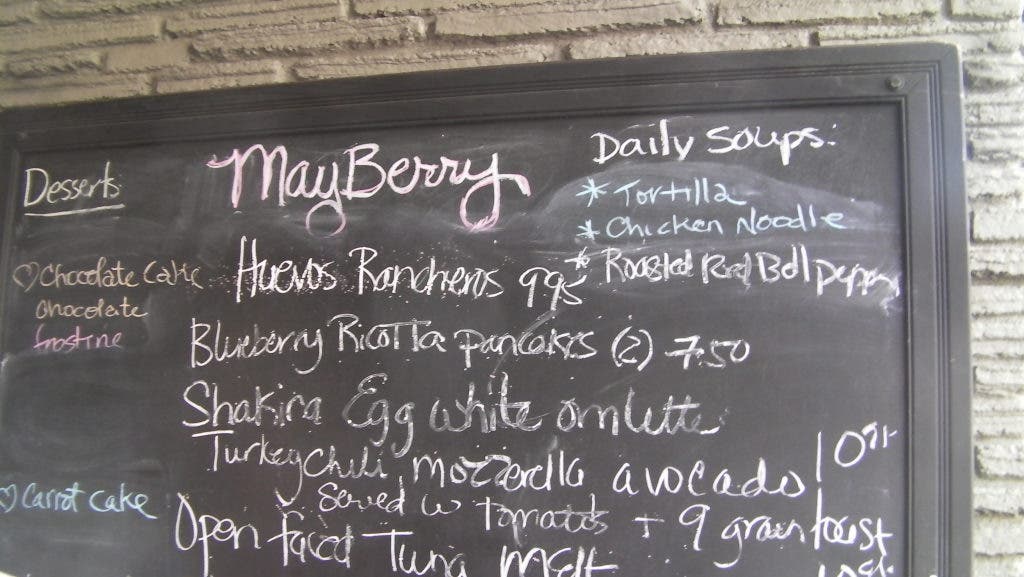 MayBerry
Desserts
♡ Chocolate Cake
chocolate
frostine
♡ Carrot cake
Daily Soups:
* Tortilla
* Chicken Noodle
* Roasted Red Bell Pepper
Huevos Rancheros 995
Blueberry Ricotta pancakes (2) 7.50
Shakira Egg white omlette
Turkey Chili mozzerella avocado
Served w Tomatoes + 9 grain toast
Open Faced Tuna Melt